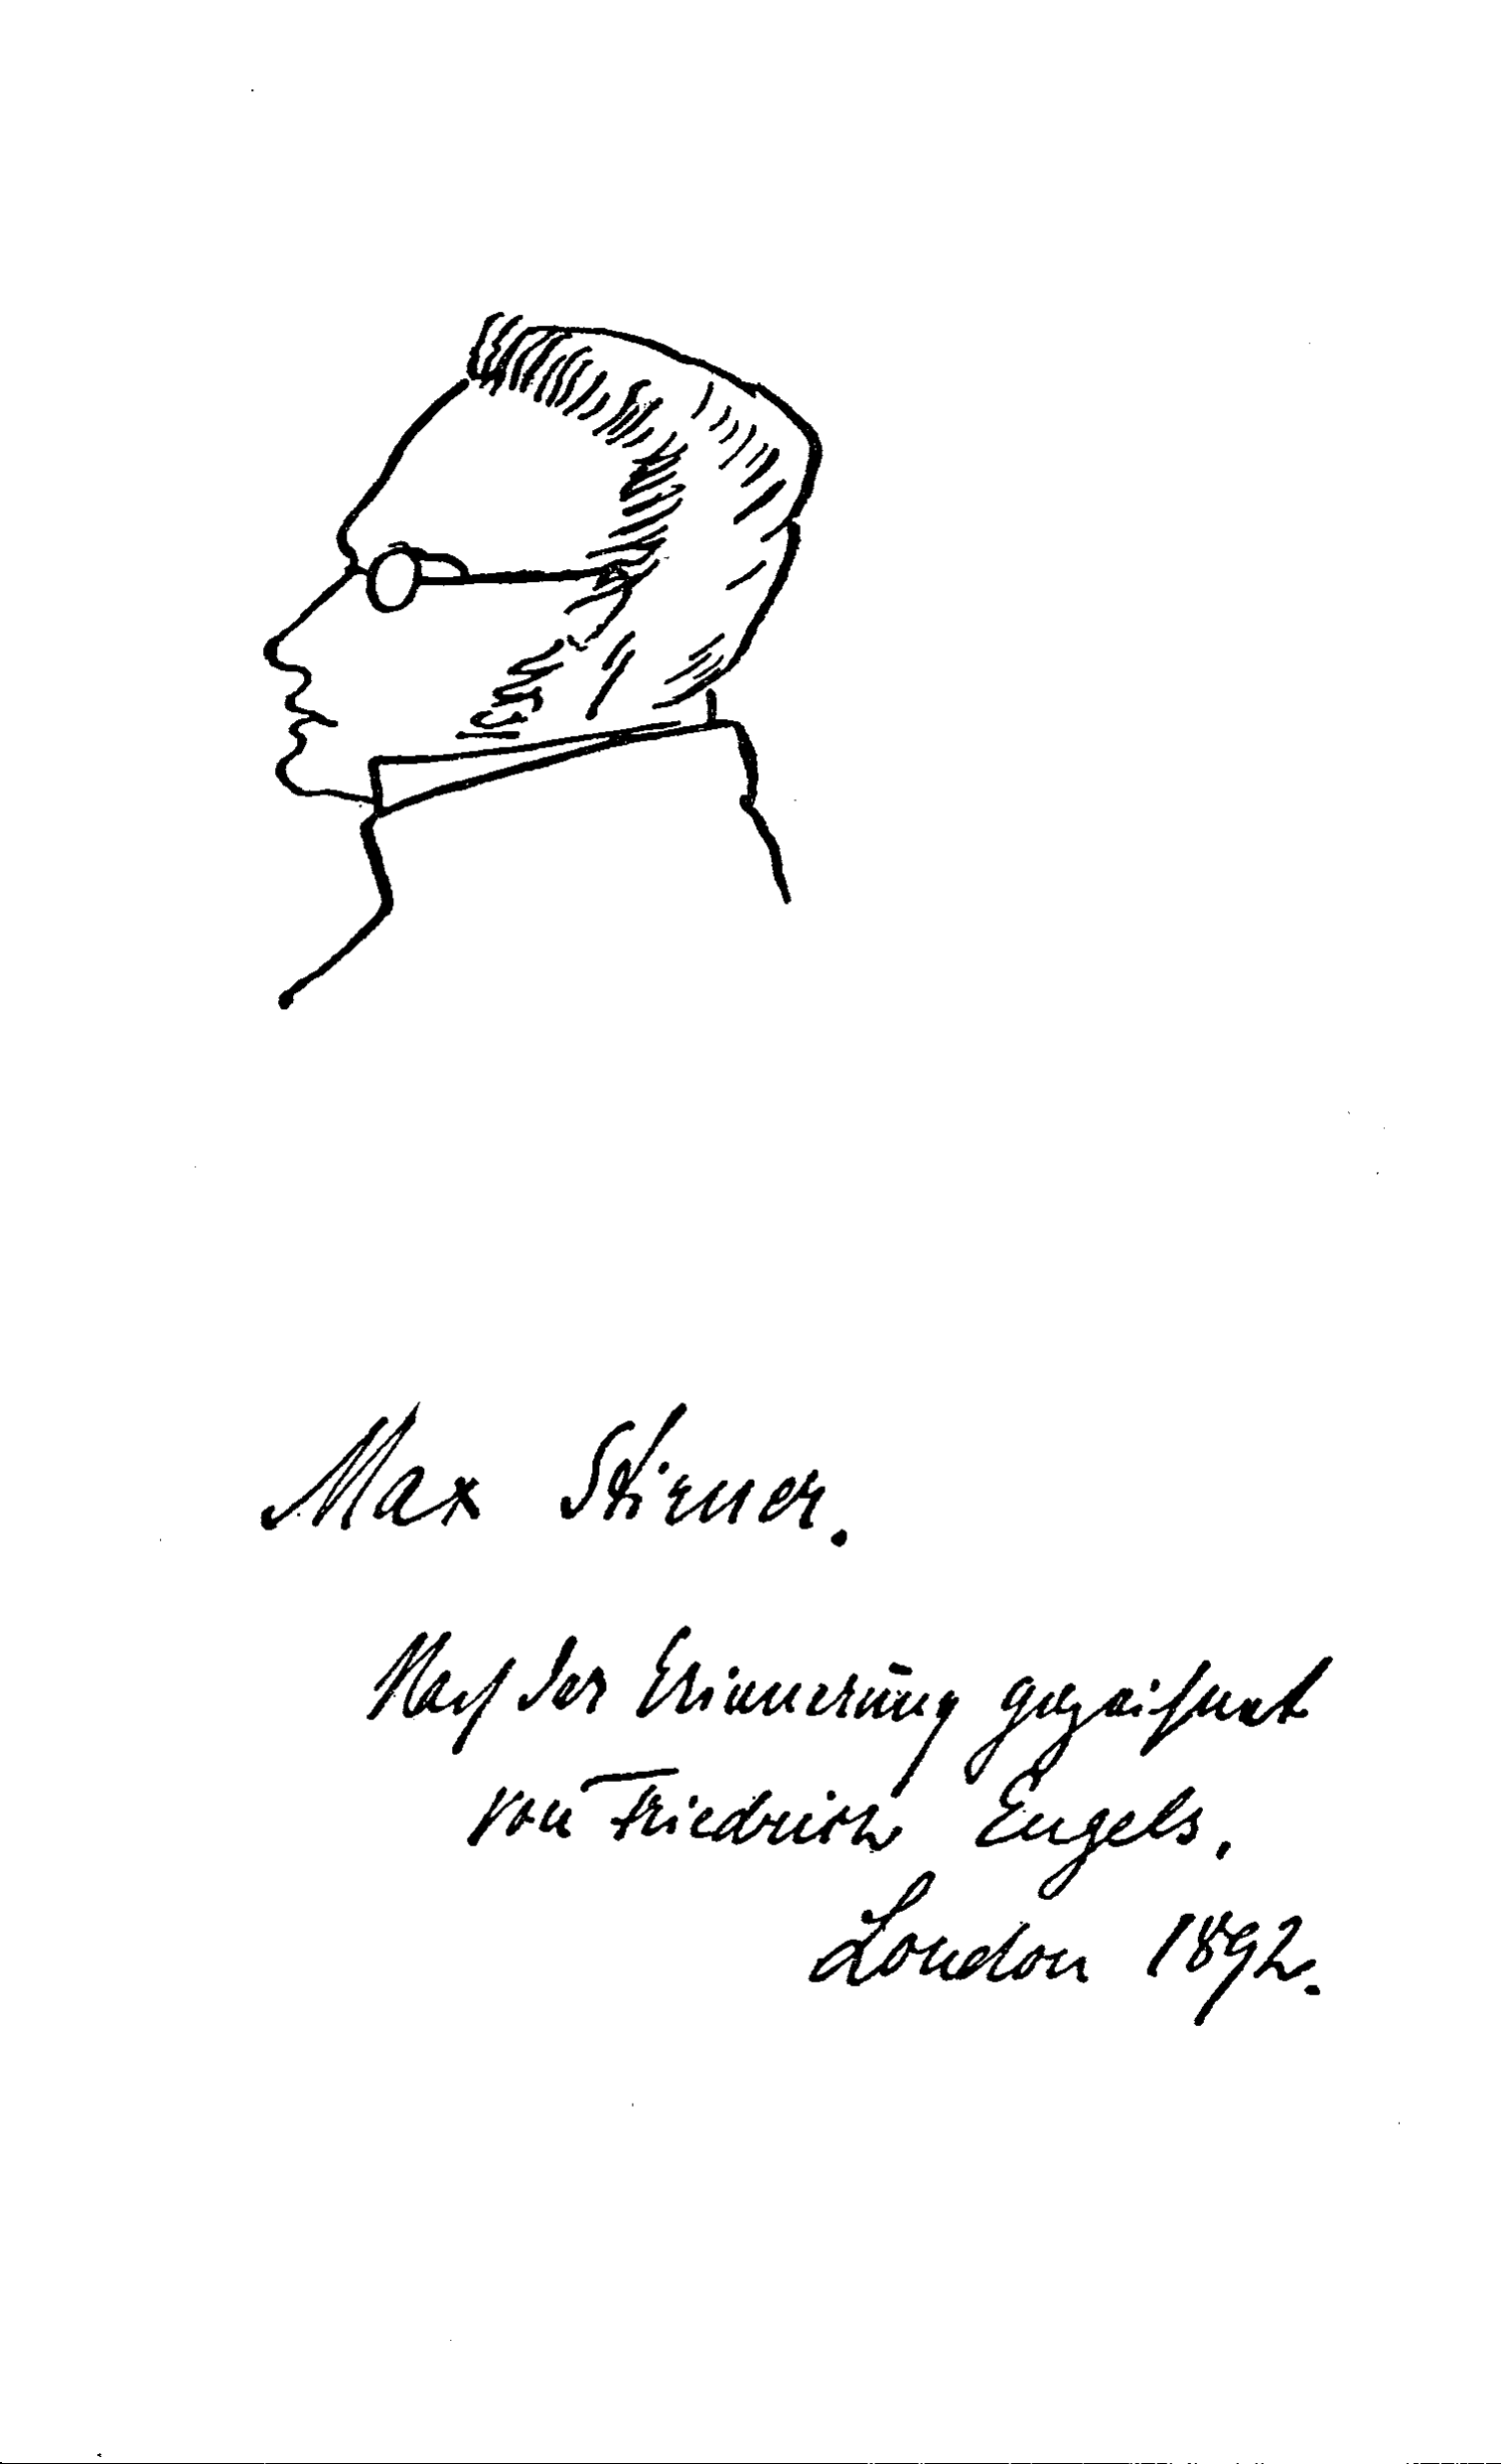 Max Stirner.
Nach der Erinnerung gezeichnet
von Friedrich Engels.
London 1892.